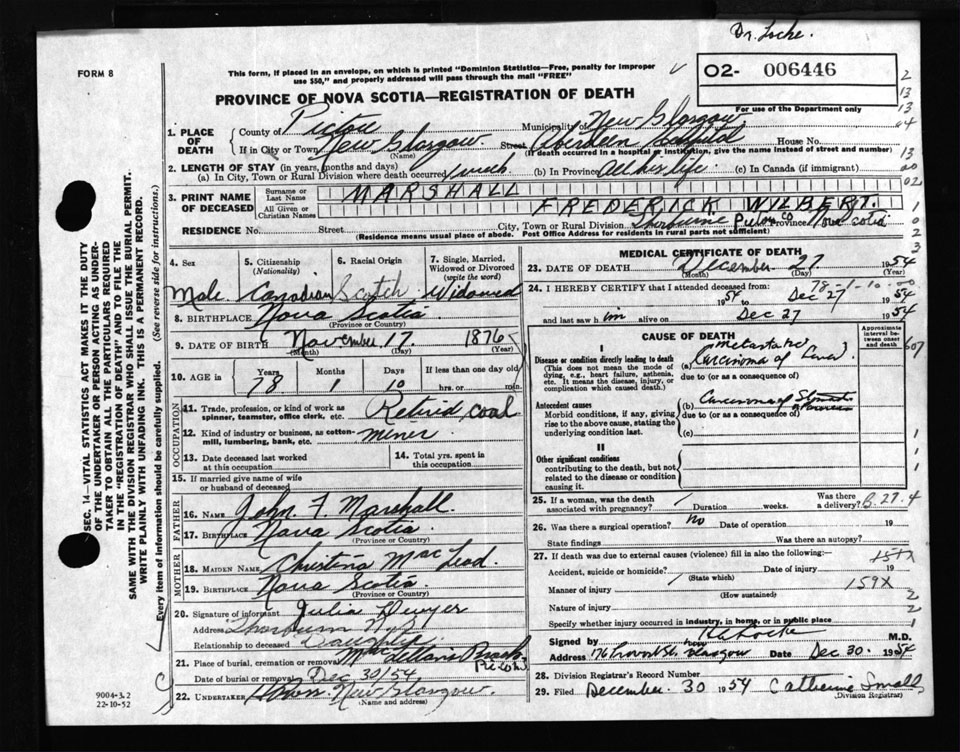 Dr. Locke.
FORM 8
This form, if placed in an envelope, on which is printed "Dominion Statistics—Free, penalty for improper
use $50," and properly addressed will pass through the mail "FREE"
02- 006446
For use of the Department only
PROVINCE OF NOVA SCOTIA—REGISTRATION OF DEATH
1. PLACE OF DEATH
County of Pictou Municipality of New Glasgow
If in City or Town New Glasgow. Street Aberdeen Hospital House No.
(Name) (If death occurred in a hospital or institution, give the name instead of street and number)
2. LENGTH OF STAY (in years, months and days)
(a) In City, Town or Rural Division where death occurred 1 week (b) In Province All his life (c) In Canada (if immigrant)
3. PRINT NAME OF DECEASED
Surname or Last Name MARSHALL
All Given or Christian Names FREDERICK WILBERT.
RESIDENCE No. Street City, Town or Rural Division Thorburne Pictou Co Nova Scotia
(Residence means usual place of abode. Post Office Address for residents in rural parts not sufficient)
4. Sex 5. Citizenship (Nationality) 6. Racial Origin 7. Single, Married, Widowed or Divorced (write the word)
Male Canadian Scotch Widowed
8. BIRTHPLACE Nova Scotia
(Province or Country)
9. DATE OF BIRTH November 17 1876
(Month) (Day) (Year)
10. AGE in Years Months Days If less than one day old
78 1 10 hrs. or min.
OCCUPATION
11. Trade, profession, or kind of work as spinner, teamster, office clerk, etc. Retired, coal
12. Kind of industry or business, as cotton-mill, lumbering, bank, etc. miner
13. Date deceased last worked at this occupation
14. Total yrs. spent in this occupation
15. If married give name of wife or husband of deceased
FATHER
16. NAME John F Marshall
17. BIRTHPLACE Nova Scotia
(Province or Country)
MOTHER
18. MAIDEN NAME Christina MacLeod
19. BIRTHPLACE Nova Scotia
(Province or Country)
20. Signature of informant Julia Dwyer
Address Thorburn N.S.
Relationship to deceased Daughter
21. Place of burial, cremation or removal MacLellans Brook Pictou
Date of burial or removal Dec 30/54
22. UNDERTAKER New Glasgow.
(Name and address)
MEDICAL CERTIFICATE OF DEATH
23. DATE OF DEATH December 27 1954
(Month) (Day) (Year)
78-1-10-00
24. I HEREBY CERTIFY that I attended deceased from:
1954 to Dec 27 1954
and last saw him alive on Dec 27 1954
CAUSE OF DEATH
Approximate interval between onset and death
I
Disease or condition directly leading to death
(This does not mean the mode of dying, e.g., heart failure, asthenia, etc. It means the disease, injury, or complication which caused death.)
(a) metastatic Carcinoma of Liver
due to (or as a consequence of)
Antecedent causes
Morbid conditions, if any, giving rise to the above cause, stating the underlying condition last.
(b) Carcinoma of Stomach
due to (or as a consequence of)
(c)
II
Other significant conditions
contributing to the death, but not related to the disease or condition causing it.
25. If a woman, was the death associated with pregnancy? Duration weeks. Was there a delivery?
26. Was there a surgical operation? no Date of operation 19
State findings Was there an autopsy?
27. If death was due to external causes (violence) fill in also the following:—
Accident, suicide or homicide? (State which) Date of injury 19
Manner of injury 159X
(How sustained)
Nature of injury
Specify whether injury occurred in industry, in home, or in public place
Signed by Locke M.D.
Address 176 Provost St. New Glasgow Date Dec 30. 1954
28. Division Registrar's Record Number
29. Filed December 30 1954 Catherine Small
(Division Registrar)
SEC. 14—VITAL STATISTICS ACT MAKES IT THE DUTY
OF THE UNDERTAKER OR PERSON ACTING AS UNDER-
TAKER TO OBTAIN ALL THE PARTICULARS REQUIRED
IN THE "REGISTRATION OF DEATH" AND TO FILE THE
SAME WITH THE DIVISION REGISTRAR WHO SHALL ISSUE THE BURIAL PERMIT.
WRITE PLAINLY WITH UNFADING INK. THIS IS A PERMANENT RECORD.
Every item of information should be carefully supplied. (See reverse side for instructions.)
9004-3.2
22-10-52